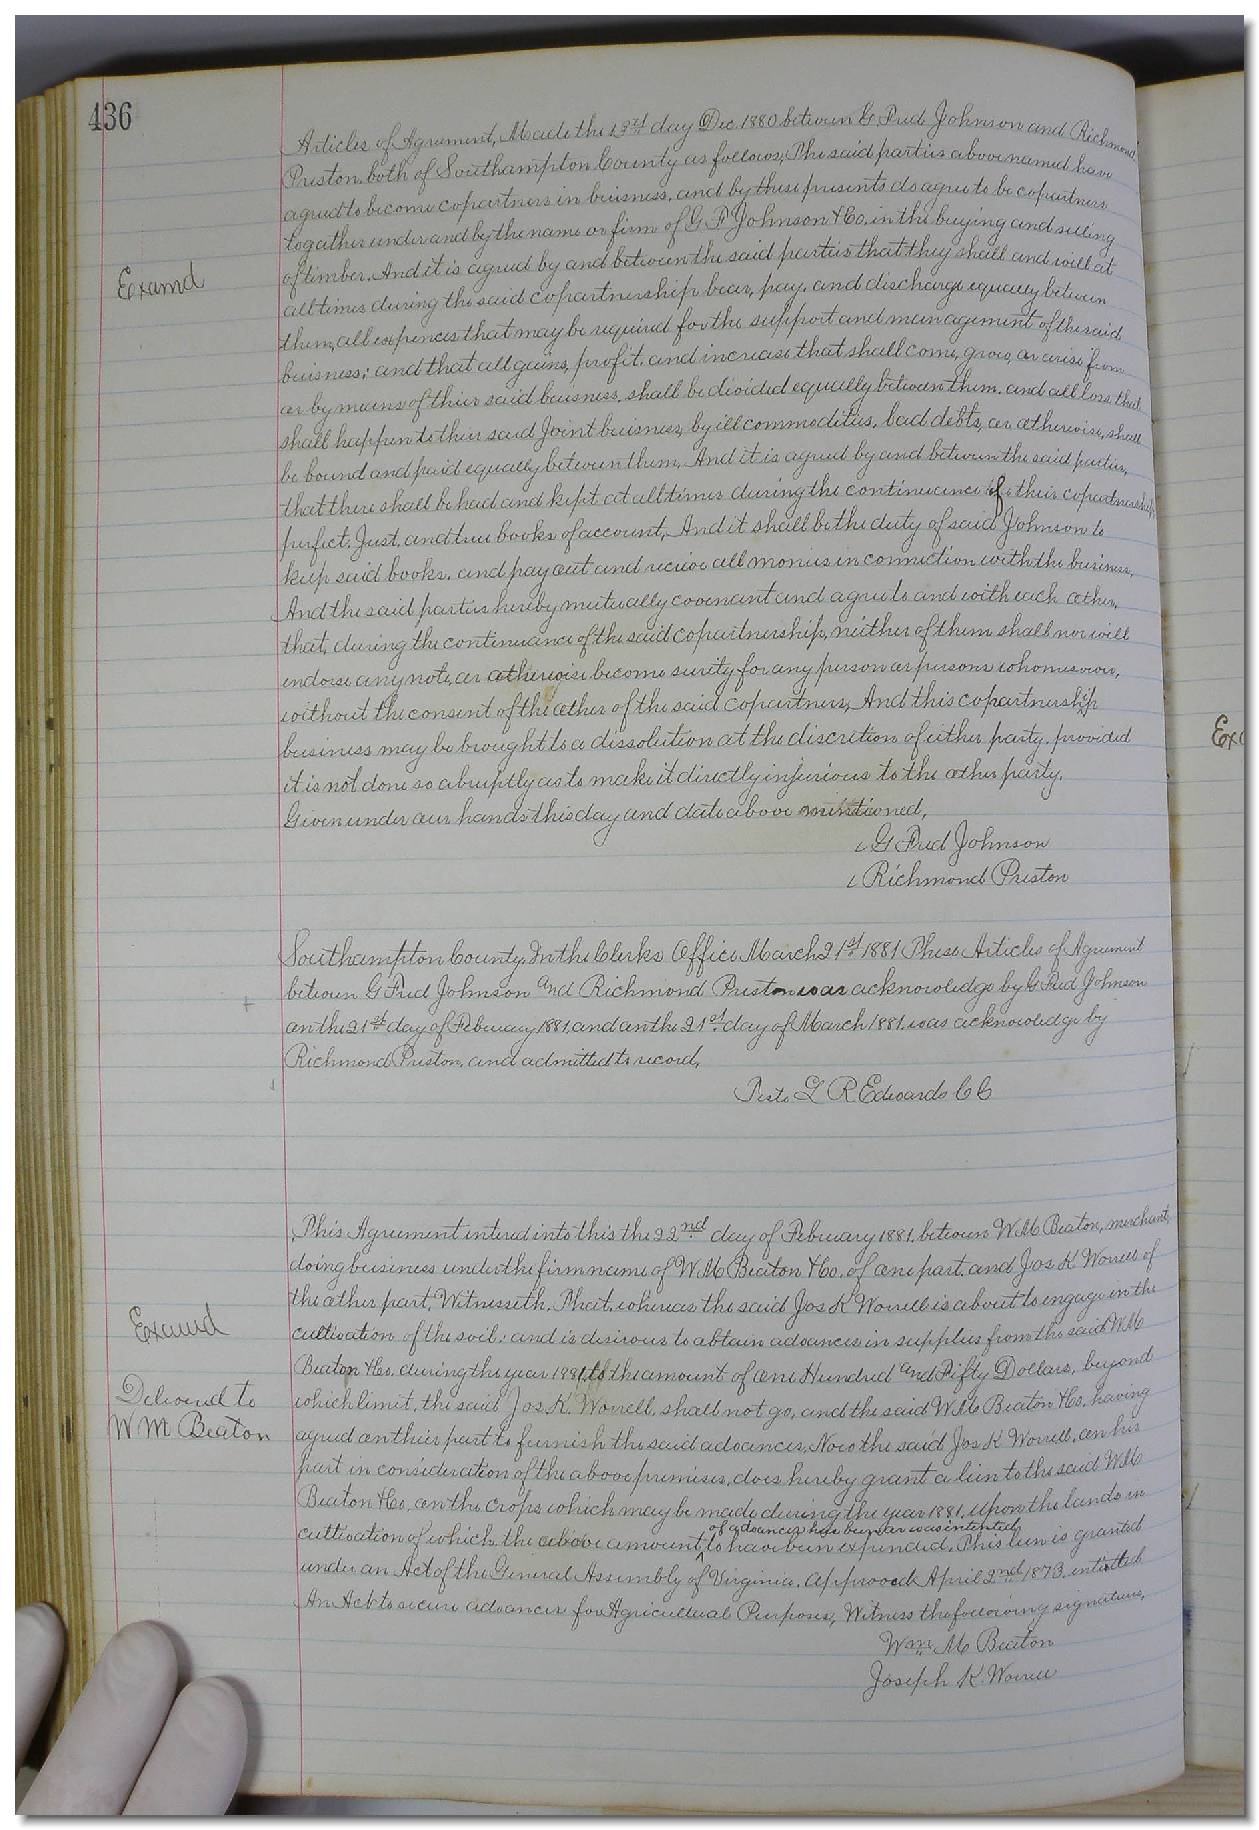 436
Articles of Agreement, Made the 13rd day Dec. 1880 between G. Fred Johnson and Richmond
Preston, both of Southampton County as follows; The said parties above named have
agreed to become copartners in buisness, and by these presents do agree to be copartners
together under and by the name or firm of G F Johnson & Co. in the buying and selling
of timber. And it is agreed by and between the said parties that they shall and will at
Examd
all times during the said copartnership bear, pay, and discharge equally between
them, all expences that may be required for the support and management of the said
buisness; and that all gains, profit, and increase that shall come, grow, or arise from
or by means of their said buisness, shall be divided equally between them, and all loss that
shall happen to their said Joint buisness, by ill commodities, bad debts, or otherwise, shall
be bound and paid equally between them, And it is agreed by and between the said parties,
that there shall be had and kept at all times during the continuance of their copartnership,
perfect, Just, and true books of account, And it shall be the duty of said Johnson to
keep said books, and pay out and recieve all monies in connection with the business,
And the said parties hereby mutually covenant and agree to and with each other,
that, during the continuance of the said copartnership, neither of them shall nor will
endorse any note, or otherwise become surity for any person or persons whomsoever,
without the consent of the other of the said copartners, And this copartnership
business may be brought to a dissolution at the discretion of either party, provided
it is not done so abruptly as to make it directly injurious to the other party.
Given under our hands this day and date above mentioned,
G Fred Johnson
Richmond Preston
Southampton County, In the Clerks Office March 21st 1881 These Articles of Agreement
between G Fred Johnson and Richmond Preston was acknowledge by G Fred Johnson
on the 21st day of February 1881, and on the 21st day of March 1881, was acknowledge by
Richmond Preston, and admitted to record,
Teste L R Edwards C C
This Agreement entered into this the 22nd day of February 1881, between W M Beaton, merchant,
doing buisness under the firm name of W M Beaton & Co, of one part, and Jos K Worrell of
the other part, Witnesseth, That, whereas the said Jos K Worrell is about to engage in the
Examd
cultivation of the soil; and is desirous to obtain advances in supplies from the said W M
Beaton & Co, during the year 1881, to the amount of one Hundred and Fifty Dollars, beyond
Delivered to
which limit, the said Jos K. Worrell, shall not go, and the said W M Beaton & Co, having
W M Beaton
agreed on their part to furnish the said advances, Now the said Jos K Worrell, on his
part in consideration of the above premises, does hereby grant a lien to the said W M
Beaton & Co, on the crops which may be made during the year 1881, upon the lands in
of advances has been or was intented
cultivation of which the above amount ^ to have been expended, This lien is granted
under an Act of the General Assembly of Virginia, approved April 2nd 1873, entitled
An Act to secure advances for Agricultural Purposes, Witness the following signatures,
Wm M Beaton
Joseph K Worrell